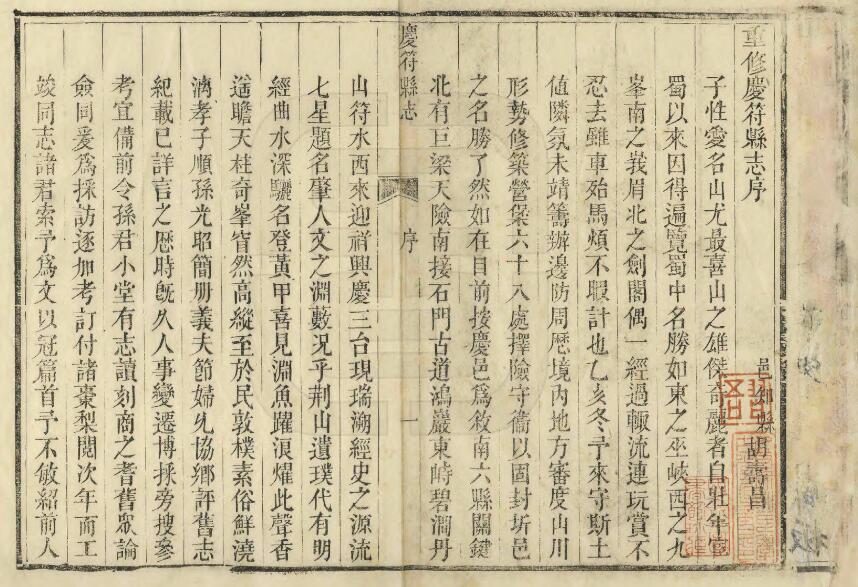 重修慶符縣志序
邑知縣胡壽昌
予性愛名山尤最喜山之雄傑奇麗者自壯年宦
蜀以來因得遍覽蜀中名勝如東之巫峽西之九
峯南之峩眉北之劍閣偶一經過輙流連玩賞不
忍去雖車殆馬煩不暇計也乙亥冬予來守斯土
値隣氛未靖籌辦邊防周歷境內地方審度山川
形勢修築營堡六十八處擇險守衞以固封圻邑
之名勝了然如在目前按慶邑爲敘南六縣關鍵
北有巨梁天險南接石門古道鴻巖東峙碧澗丹
慶符縣志
序
一
山符水西來迎祥興慶三台現瑞溯經史之源流
七星題名肇人文之淵藪况乎荆山遺璞代有明
經曲水深驪名登黃甲喜見淵魚躍浪燿此聲香
遥瞻天柱奇峯窅然高縱至於民敦樸素俗鮮澆
漓孝子順孫光昭簡册義夫節婦允協鄉評舊志
紀載已詳言之歷時旣久人事變遷博採旁搜參
考宜備前令孫君小堂有志讀刻商之耆舊眾論
僉同爰爲採訪逐加考訂付諸棗梨閱次年而工
竣同志諸君索予爲文以冠篇首予不敏紹前人